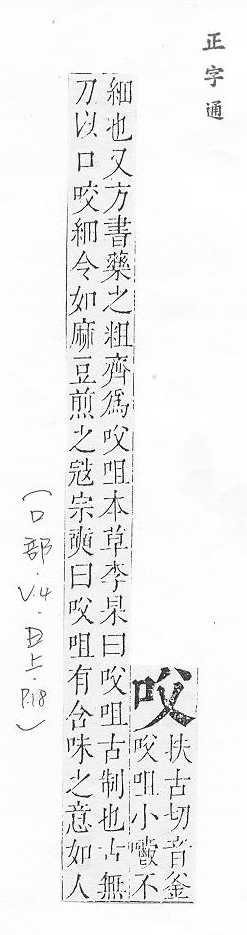 正字通
㕮
扶古切音釜
㕮咀小嚼不
細也又方書藥之粗齊爲㕮咀本草李杲曰㕮咀古制也古無
刀以口咬細令如麻豆煎之寇宗奭曰㕮咀有含味之意如人
(口部.V.4.丑上.P.18)